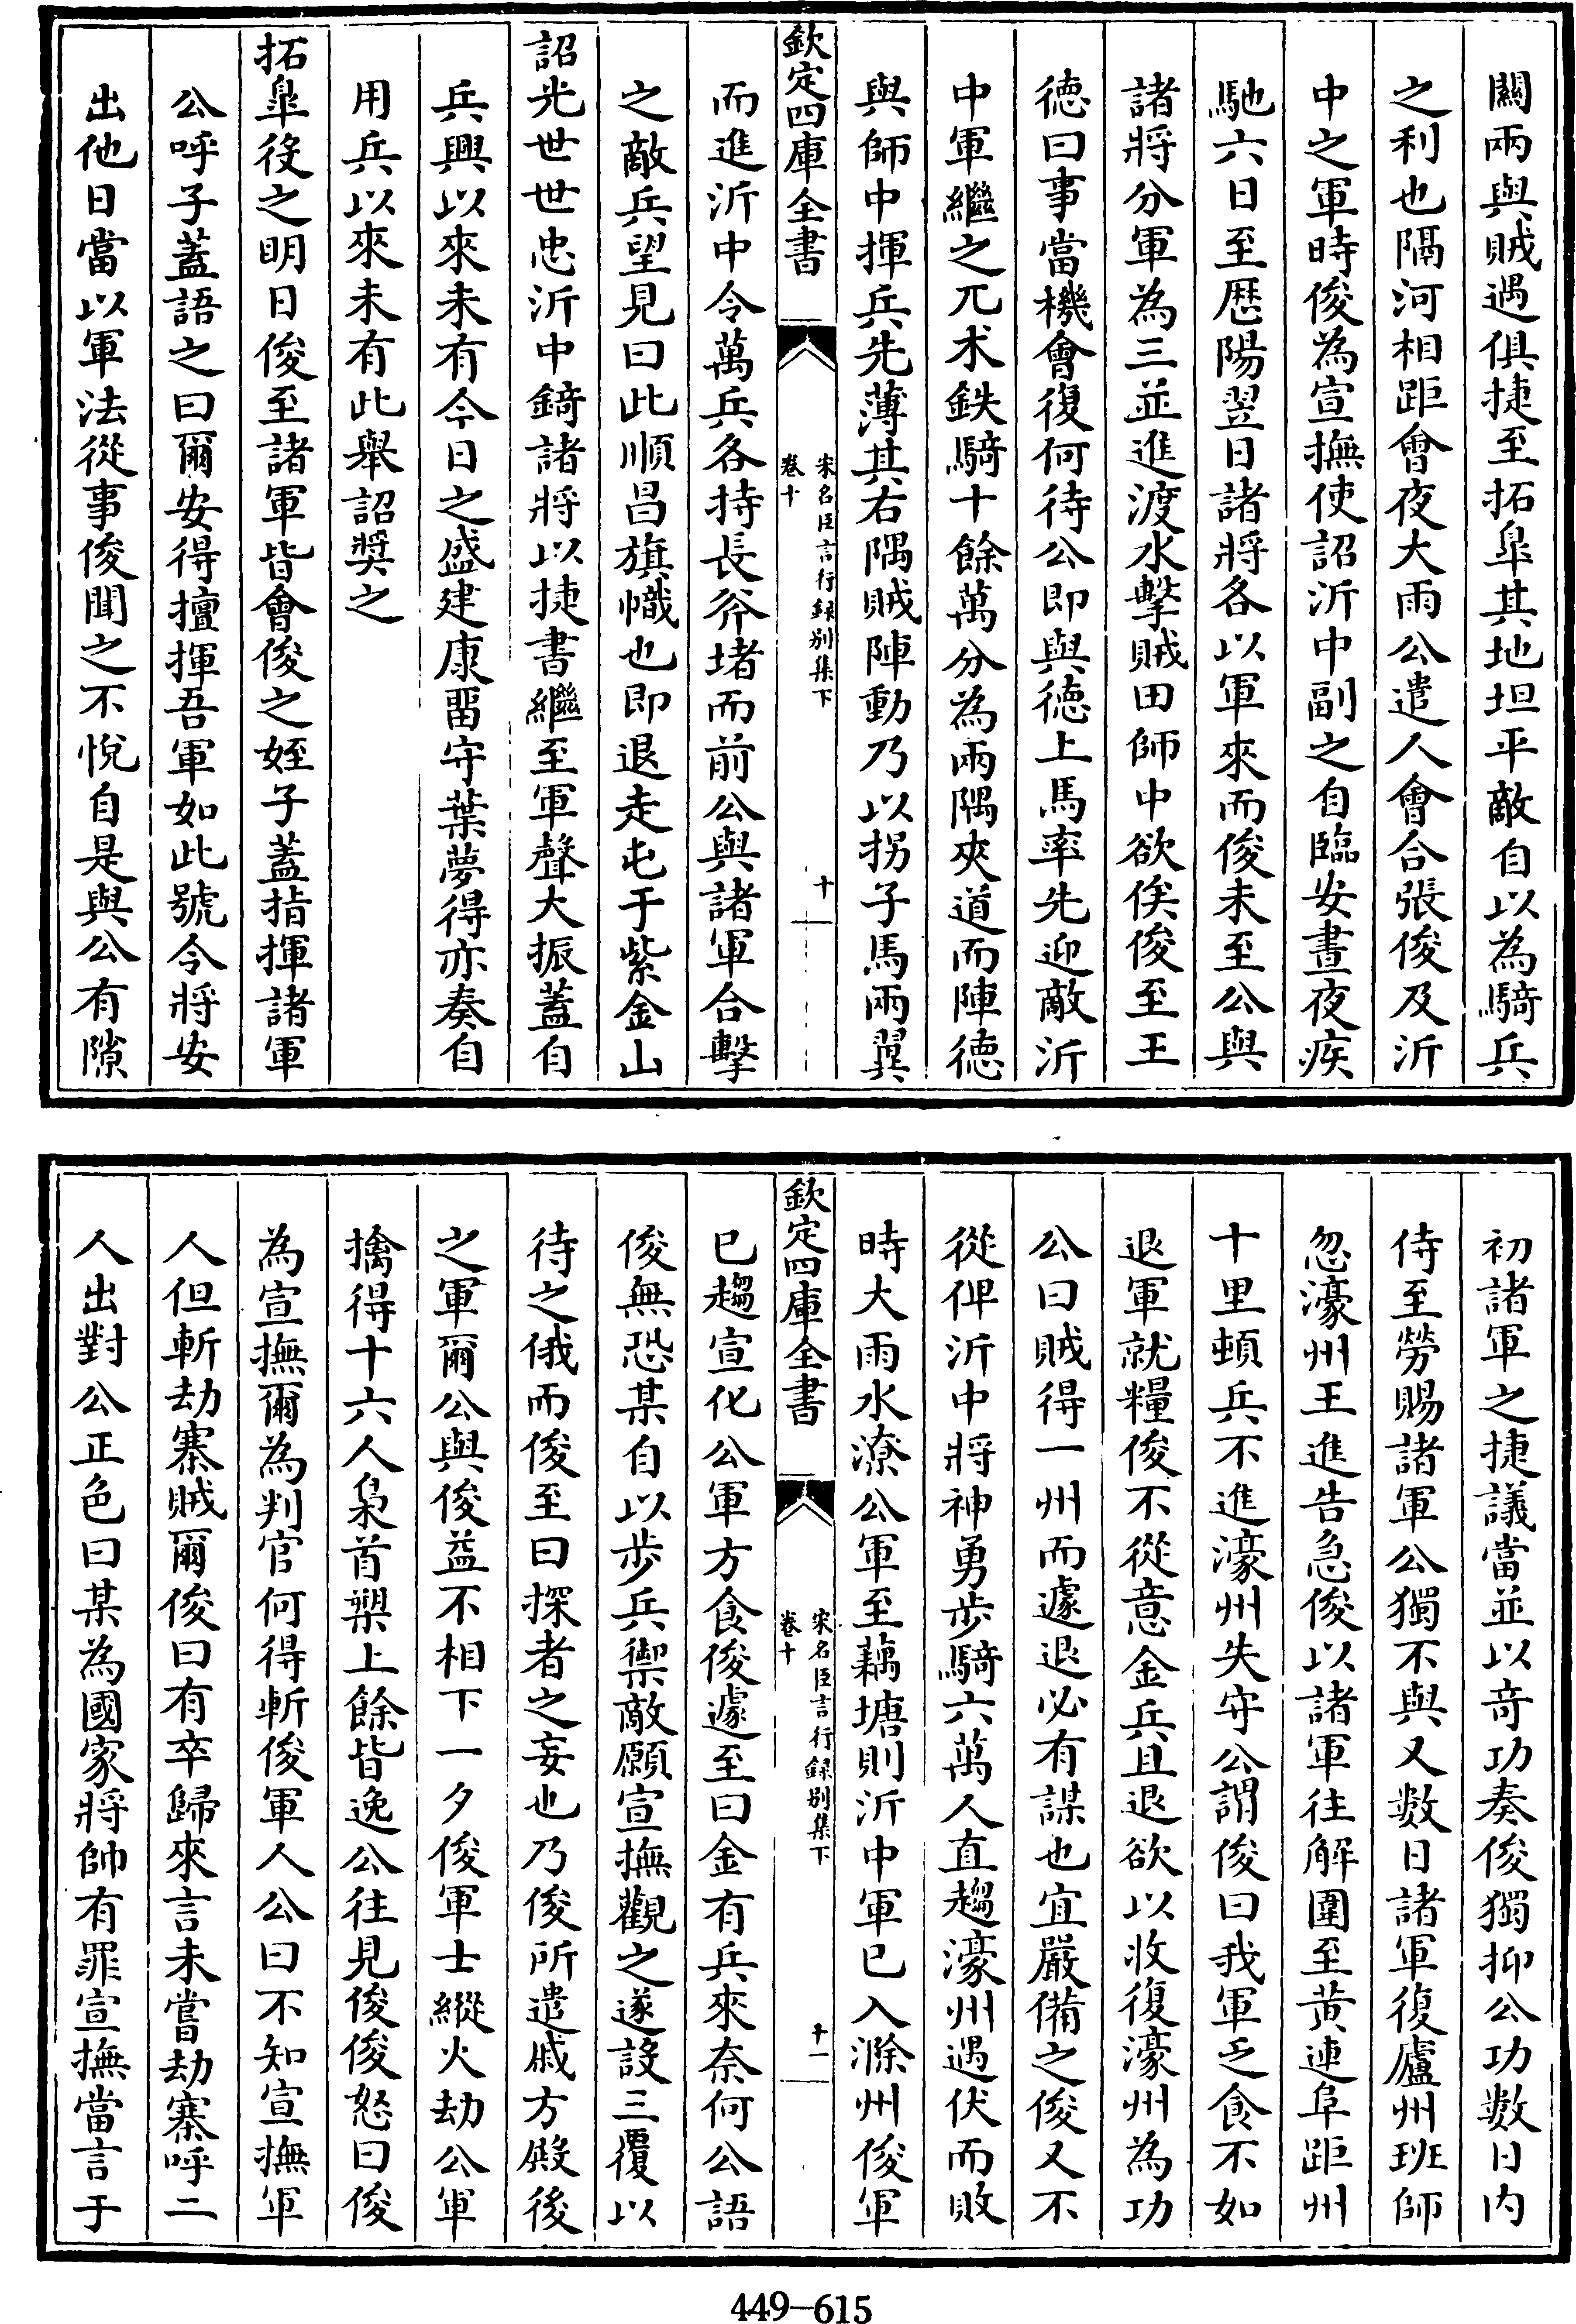 關兩與賊遇俱捷至拓臯其地坦平敵自以為騎兵
之利也隔河相距會夜大雨公遣人會合張俊及沂
中之軍時俊為宣撫使詔沂中副之自臨安晝夜疾
馳六日至歴陽翌日諸將各以軍來而俊未至公與
諸將分軍為三並進渡水擊賊田師中欲俟俊至王
德曰事當機會復何待公即與德上馬率先迎敵沂
中軍繼之兀朮鉄騎十餘萬分為兩隅夾道而陣德
與師中揮兵先薄其右隅賊陣動乃以拐子馬兩翼
欽定四庫全書
宋名臣言行録别集下
卷十
十
而進沂中令萬兵各持長斧堵而前公與諸軍合擊
之敵兵望見曰此順昌旗幟也即退走屯于紫金山
詔光世世忠沂中錡諸將以捷書繼至軍聲大振蓋自
兵興以來未有今日之盛建康畱守葉夢得亦奏自
用兵以來未有此舉詔奬之
拓臯役之明日俊至諸軍皆會俊之姪子蓋指揮諸軍
公呼子蓋語之曰爾安得擅揮吾軍如此號令將安
出他日當以軍法從事俊聞之不悅自是與公有隙
初諸軍之捷議當並以竒功奏俊獨抑公功數日内
侍至勞賜諸軍公獨不與又数日諸軍復廬州班師
忽濠州王進告急俊以諸軍往解圍至黄連阜距州
十里頓兵不進濠州失守公謂俊曰我軍乏食不如
退軍就糧俊不從意金兵且退欲以收復濠州為功
公曰賊得一州而遽退必有謀也宜嚴備之俊又不
從俾沂中將神勇歩騎六萬人直趨濠州遇伏而敗
時大雨水潦公軍至藕塘則沂中軍已入滁州俊軍
欽定四庫全書
宋名臣言行録别集下
卷十
十一
已趨宣化公軍方食俊遽至曰金有兵來奈何公語
俊無恐某自以歩兵禦敵願宣撫觀之遂設三覆以
待之俄而俊至曰探者之妄也乃俊所遣戚方殿後
之軍爾公與俊益不相下一夕俊軍士縱火劫公軍
擒得十六人梟首槊上餘皆逸公往見俊俊怒曰俊
為宣撫爾為判官何得斬俊軍人公曰不知宣撫軍
人但斬劫寨賊爾俊曰有卒歸來言未嘗劫寨呼二
人出對公正色曰某為國家將帥有罪宣撫當言于
449-615